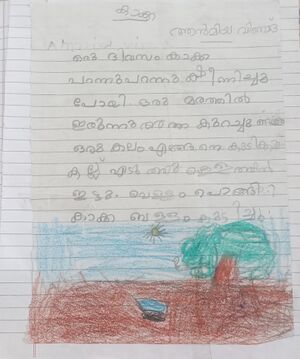 കാക്ക
ആൻമിയ വിണ്ട്
ഒരു ദിവസം കാക്ക
പറന്നുപറന്നു ക്ഷീണിച്ചു
പോയി. ഒരു മരത്തിൽ
ഇരുന്നു കുറച്ചു
ഒരു കലം എങ്ങനെ കുടിക്കും
കല്ല് എടുത്ത് കലത്തിൽ
ഇട്ടു. വെള്ളം പൊങ്ങി.
കാക്ക വെള്ളം കുടിച്ചു.